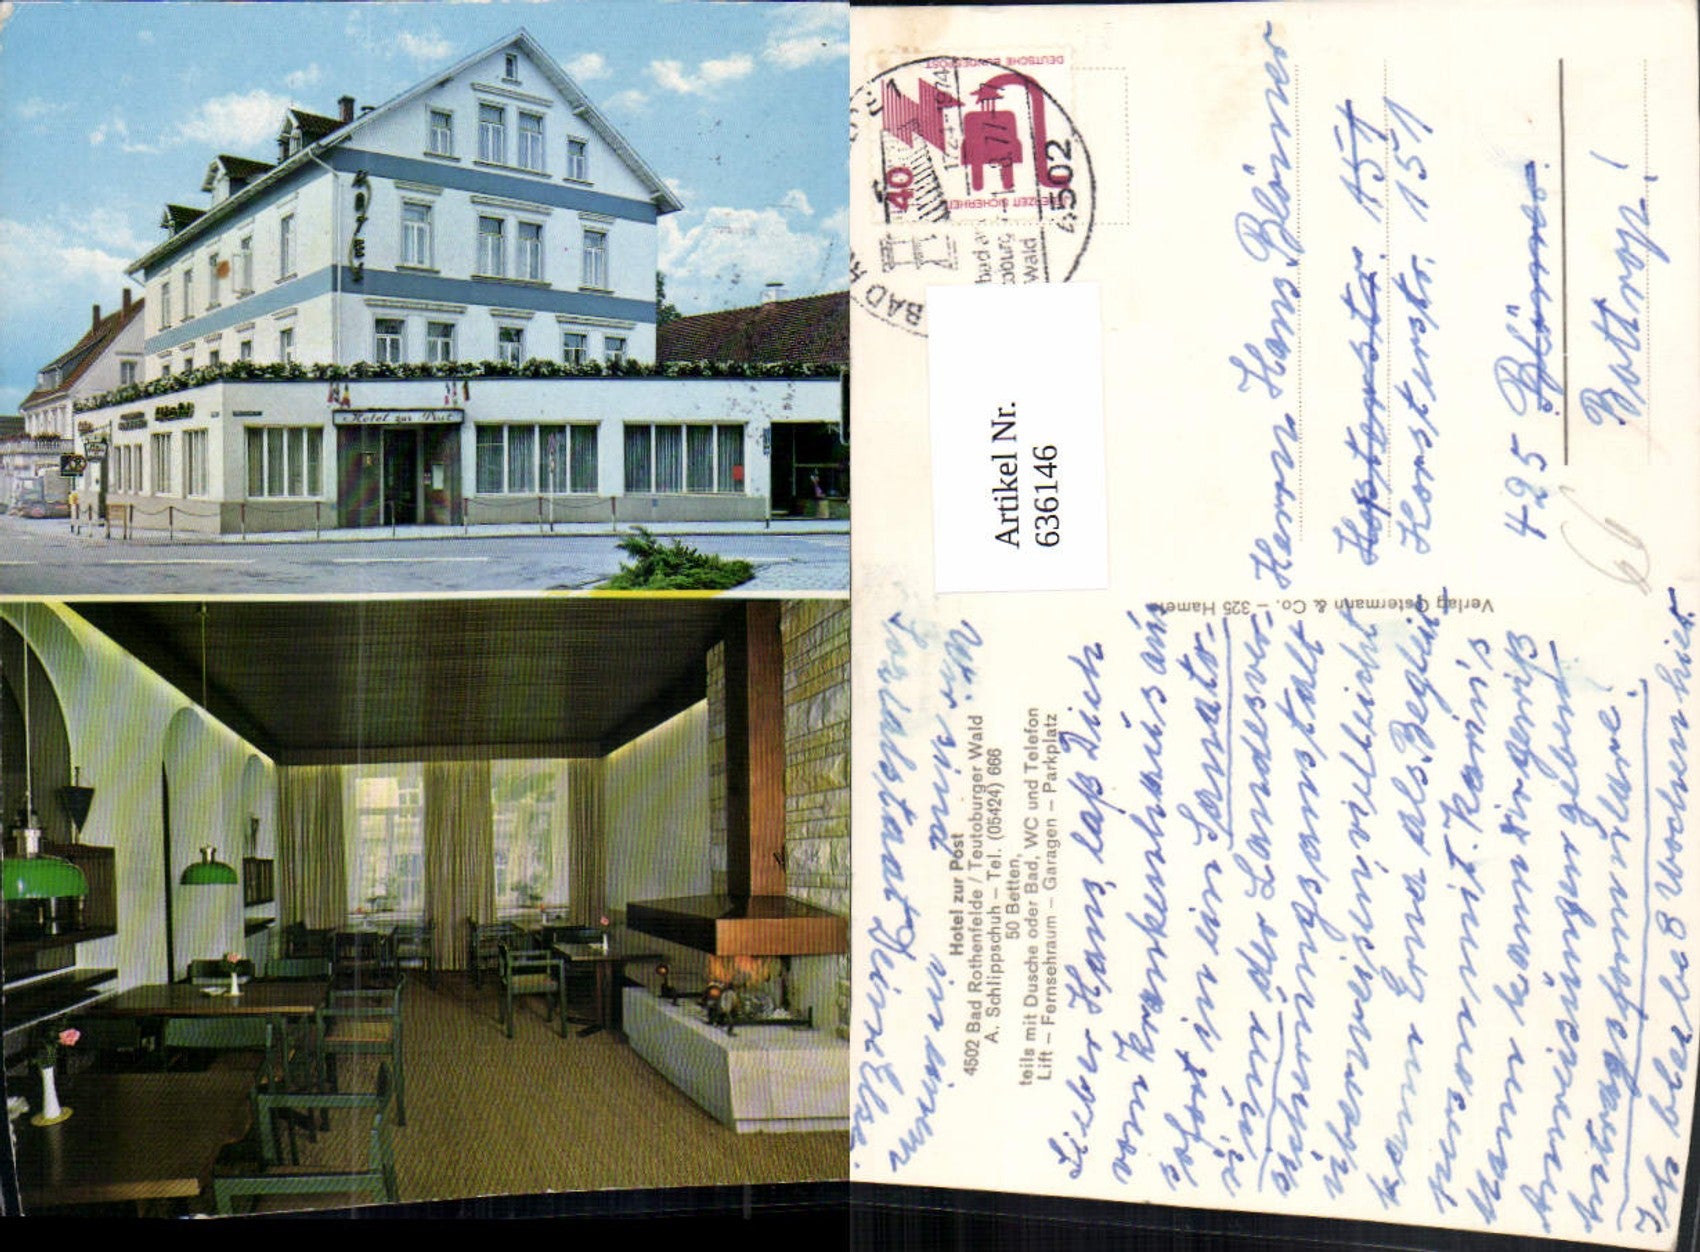 HOTEL
Hotel zur Post
DEUTSCHE BUNDESPOST
40
4502
BAD
Wald
Artikel Nr.
636146
Herrn Hans Blömer
Horsterstr. 151
Horsterstr. 151
425 Blömer.
Bottrop!
Verlag Ostermann & Co. – 325 Hameln
Hotel zur Post
4502 Bad Rothenfelde / Teutoburger Wald
A. Schlippschuh – Tel. (05424) 666
50 Betten,
teils mit Dusche oder Bad, WC und Telefon
Lift – Fernsehraum – Garagen – Parkplatz
Lieber Hans, laß Dich
vom Krankenhaus aus
sofort in ein Sanato-
rium der Landesver-
sicherungsanstalt
überweisen, vielleicht
kann Erna als Beglei-
terin mit. Kamis
Mann kann Dir gewiß
Anweisungen geben
Antragsformulare!
Ich bleibe 8 Wochen hier.
Wir sind in einem
Deine Else.